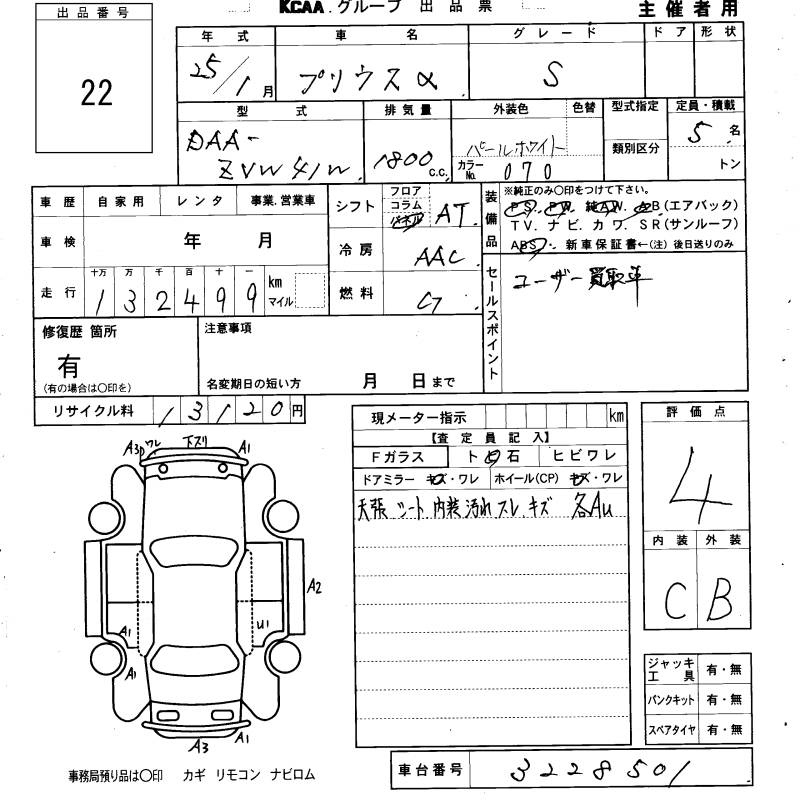 KCAA. グループ 出品票 主催者用
出品番号
22
年式 車名 グレード ドア 形状
25/1月 プリウスα S
型式 排気量 外装色 色替 型式指定 定員・積載
DAA-
ZVW41W 1800 c.c. パールホワイト 類別区分 5名
カラーNo. 070 トン
車歴 自家用 レンタ 事業.営業車
車検 年 月
走行 十万 万 千 百 十 一
132499 km マイル
シフト フロア コラム パネル AT
冷房 AAC
燃料 G
装備品 ※純正のみ○印をつけて下さい。
PS. PW. 純AW. AB(エアバック)
TV. ナビ. カワ. SR(サンルーフ)
ABS. 新車保証書←(注)後日送りのみ
セールスポイント ユーザー買取車
修復歴 箇所
有
(有の場合は○印を)
注意事項
名変期日の短い方 月 日まで
リサイクル料 13120円
現メーター指示 km
【査定員記入】
Fガラス ト石 ヒビワレ
ドアミラー キズ・ワレ ホイール(CP) キズ・ワレ
天張 シート 内装 汚れ スレ.キズ 各AU
評価点
4
内装 外装
C B
ジャッキ工具 有・無
パンクキット 有・無
スペアタイヤ 有・無
A3 ワレ 下スリ A1
A2
A1 U1
A1
A3 A1
事務局預り品は○印 カギ リモコン ナビロム
車台番号 3228501